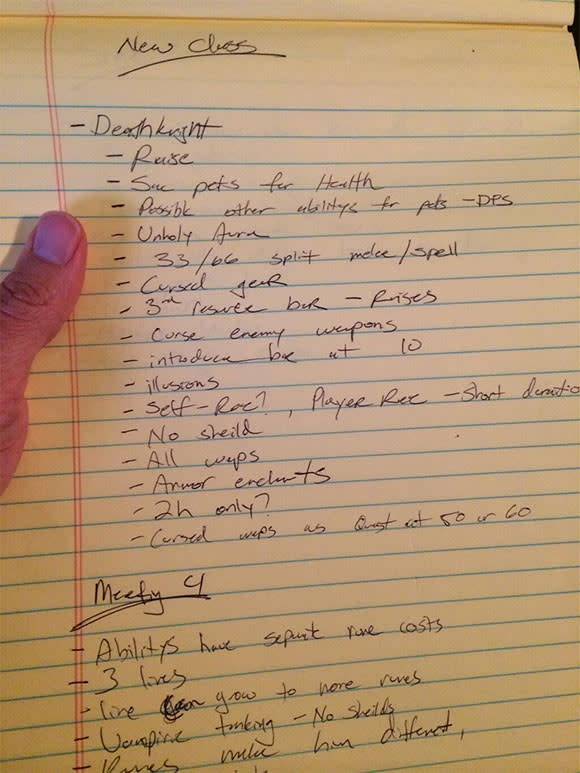 New Class
- Deathknight
- Raise
- Sac pets for Health
- Possible other abilitys for pets - DPS
- Unholy Aura
- 33/66 split melee/spell
- Cursed gear
- 3rd resource bar - Raises
- Curse enemy weapons
- introduce bar at 10
- illusions
- Self-Rec?, Player Rec - Short duratio
- No sheild
- All weps
- Armor enchants
- 2h only?
- Cursed weps as Quest at 50 or 60
Meeting 4
- Abilitys have seprit rune costs
- 3 lines
- line grow to more runes
- Vampiric tanking - No sheilds
- Runes make him different,